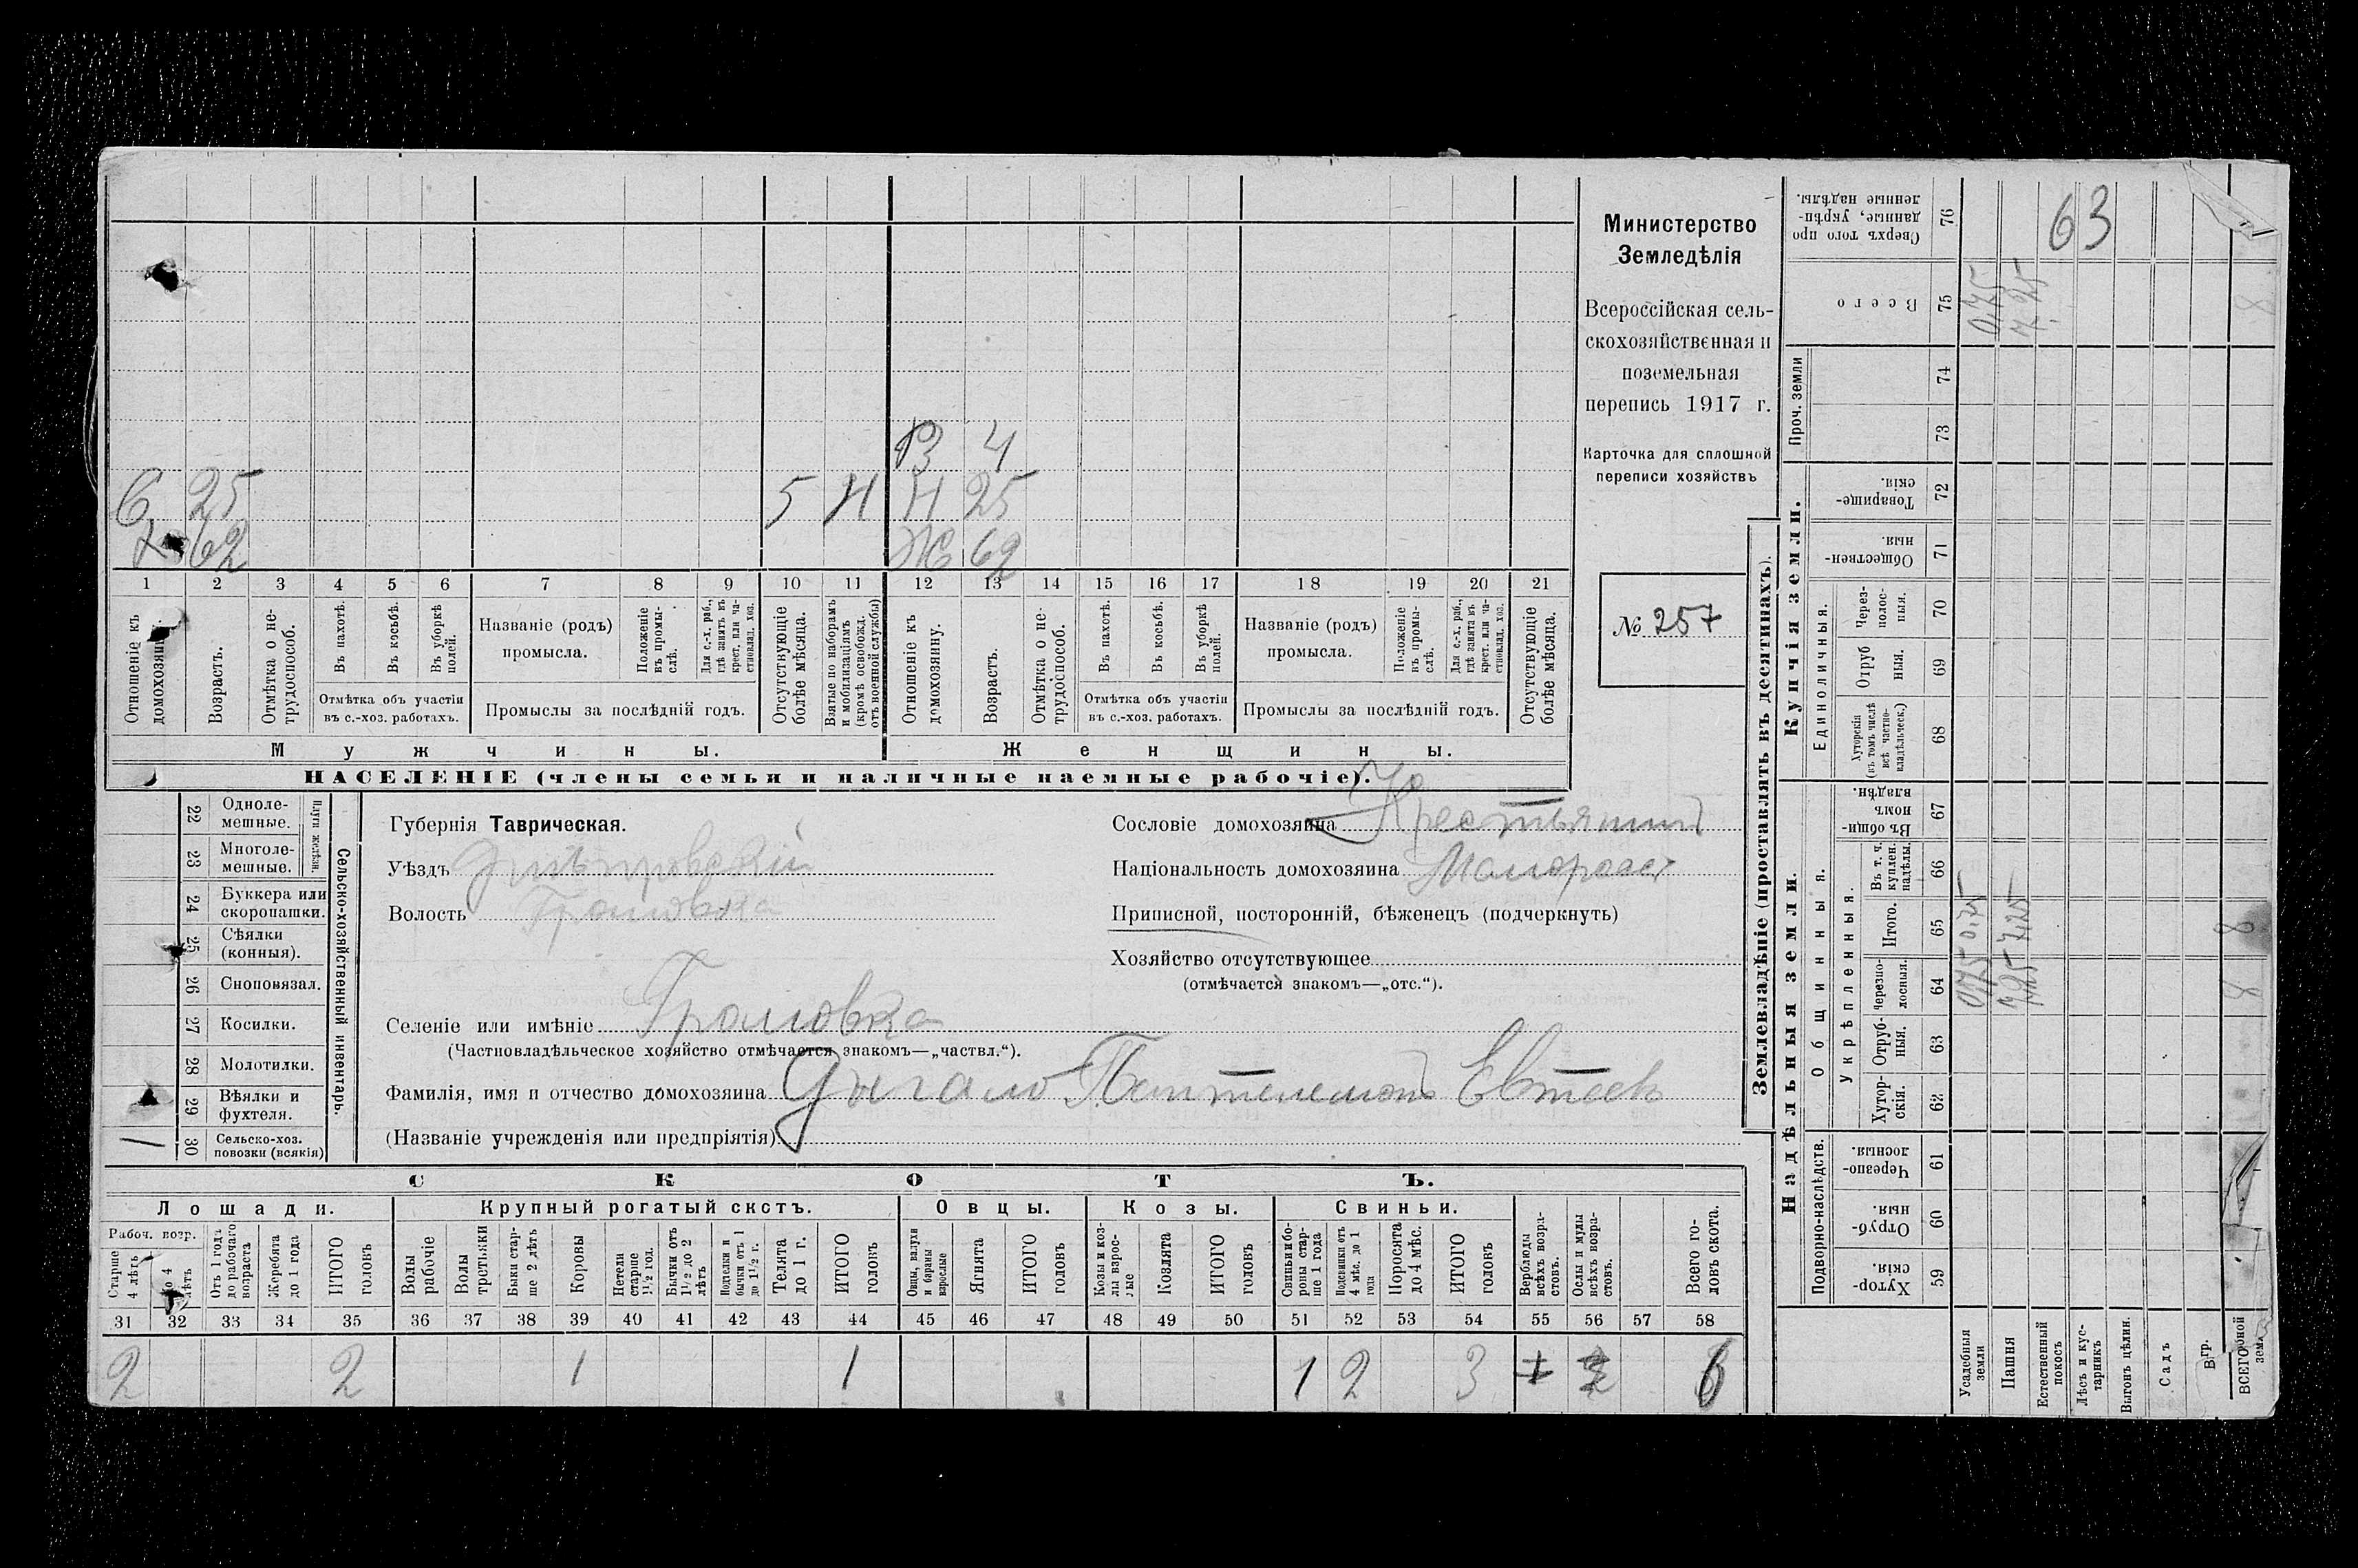 В 4
С 25 5 Н Н 25
Х 62 Ж 62
1 2 3 4 5 6 7 8 9 10 11 12 13 14 15 16 17 18 19 20 21
Отношеніе къ домохозяину.
Возрастъ.
Отмѣтка о не-
трудоспособ.
Въ пахотѣ.
Въ косьбѣ.
Въ уборкѣ
полей.
Отмѣтка объ участіи
въ с.-хоз. работахъ.
Названіе (родъ)
промысла.
Положеніе
въ промы-
слѣ.
Для с.-х. раб.,
гдѣ занятъ въ
крест. или ча-
стновлад. хоз.
Промыслы за послѣдній годъ.
Отсутствующіе
болѣе мѣсяца.
Взятые по наборамъ
и мобилизаціямъ
(кромѣ освобожд.
отъ военной службы)
Отношеніе къ
домохозяину.
Возрастъ.
Отмѣтка о не-
трудоспособ.
Въ пахотѣ.
Въ косьбѣ.
Въ уборкѣ
полей.
Отмѣтка объ участіи
въ с.-хоз. работахъ.
Названіе (родъ)
промысла.
Положеніе
въ промы-
слѣ.
Для с.-х. раб.,
гдѣ занята въ
крест. или ча-
стновлад. хоз.
Промыслы за послѣдній годъ.
Отсутствующіе
болѣе мѣсяца.
Мужчины.
Женщины.
НАСЕЛЕНІЕ (члены семьи и наличные наемные рабочіе).
Министерство
Земледѣлія
Всероссійская сель-
скохозяйственная и
поземельная
перепись 1917 г.
Карточка для сплошной
переписи хозяйствъ
№ 257
22 Одноле-
мешные.
23 Многоле-
мешные.
Плуги желѣзн.
24 Буккера или
скоропашки.
25 Сѣялки
(конныя).
26 Сноповязал.
27 Косилки.
28 Молотилки.
29 Вѣялки и
фухтеля.
1 30 Сельско-хоз.
повозки (всякія)
Сельско-хозяйственный инвентарь.
Губернія Таврическая.
Уѣздъ Днѣпровскій
Волость Громовка
Селеніе или имѣніе Громовка
(Частновладѣльческое хозяйство отмѣчается знакомъ—„частвл.“).
Фамилія, имя и отчество домохозяина Дыгало Пантелемонъ Евтеев
(Названіе учрежденія или предпріятія)
Сословіе домохозяина Крестьянинъ
Національность домохозяина Малоросс
Приписной, посторонній, бѣженецъ (подчеркнуть)
Хозяйство отсутствующее
(отмѣчается знакомъ—„отс.“).
СКОТЪ.
Лошади. Крупный рогатый скотъ. Овцы. Козы. Свиньи.
Рабоч. возр.
Старше
4 лѣтъ
До 4
лѣтъ
Отъ 1 года
до рабочаго
возраста
Жеребята
до 1 года
ИТОГО
головъ
Волы
рабочіе
Волы
третьяки
Быки стар-
ше 2 лѣтъ
Коровы
Нетели
старше
1½ год.
Бычки отъ
1½ до 2
лѣтъ
Подтелки и
бычки отъ 1
до 1½ г.
Телята
до 1 г.
ИТОГО
головъ
Овцы, валухи
и бараны
взрослые
Ягнята
ИТОГО
головъ
Козы и коз-
лы взрос-
лые
Козлята
ИТОГО
головъ
Свиньи и бо-
ровы стар-
ше 1 года
Подсвинки отъ
4 мѣс. до 1
года
Поросята
до 4 мѣс.
ИТОГО
головъ
Верблюды
всѣхъ возра-
стовъ.
Ослы и мулы
всѣхъ возра-
стовъ.
Всего го-
ловъ скота.
31 32 33 34 35 36 37 38 39 40 41 42 43 44 45 46 47 48 49 50 51 52 53 54 55 56 57 58
2 2 1 1 1 2 3 1 2 6
Землевладѣніе (проставлять въ десятинахъ).
Купчія земли.
Надѣльныя земли.
Проч. земли
Единоличныя.
Общинныя.
Укрѣпленныя.
Подворно-наслѣдств.
Сверхъ того про
данные, укрѣп-
ленные надѣлы.
76 63
Всего
75 0,75 7,25 8
74
73
Товарище-
скія.
72
Обществен-
ныя.
71
Через-
полос-
ныя.
70
Отруб
ныя.
69
Хуторскія
(въ томъ числѣ
всѣ частно-
владѣльческ.)
68
Въ общи-
номъ
владѣн.
67
Въ т. ч.
куплен.
надѣлы.
66
Итого.
65 0,75 7,25 8
Черезпо-
лосныя.
64 0,75 7,25 8
Отруб-
ныя.
63
Хутор-
скія.
62
Черезпо-
лосныя.
61
Отруб-
ныя.
60
Хутор-
скія.
59
Усадебныя
земли
Пашня
Естественный
покосъ
Лѣсъ и кус-
тарникъ
Выгонъ цѣлин.
Садъ